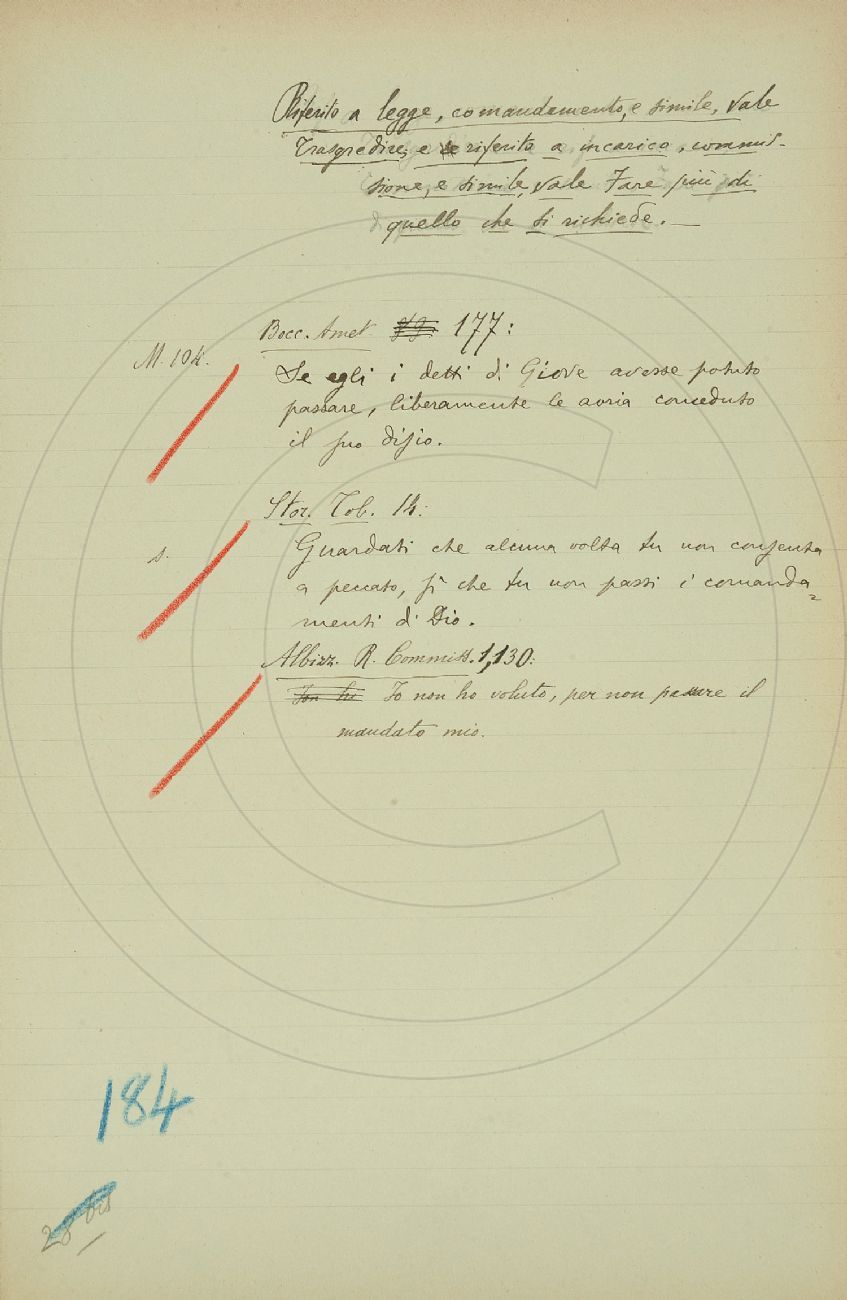 Riferito a legge, comandamento, e simile, vale
Trasgredire; e se riferito a incarico, commis-
sione, e simile, vale Fare più di
quello che si richiede. —
Bocc. Amet. 177:
M. 104.
Se egli i detti di Giove avesse potuto
passare, liberamente le avria conceduto
il suo disio.
Stor. Tob. 14:
s.
Guardati che alcuna volta tu non consenta
a peccato, sì che tu non passi i comanda=
menti di Dio.
Albizz. R. Commiss. 1,130:
Io non ho voluto, per non passare il
mandato mio.
184
28 bis